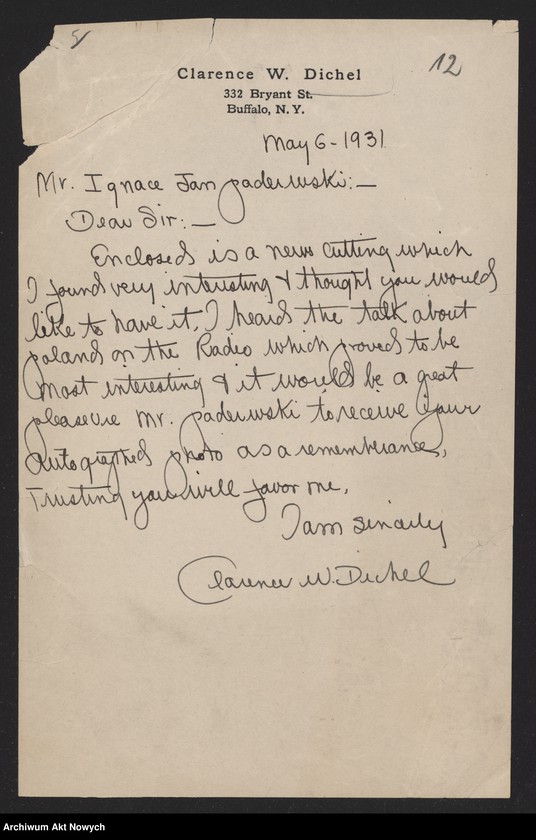 12
Clarence W. Dichel
332 Bryant St.
Buffalo, N. Y.
May 6 - 1931
Mr. Ignace Jan Paderewski: —
Dear Sir: —
Enclosed is a news cutting which
I found very interesting & thought you would
like to have it, I heard the talk about
Poland on the Radio which proved to be
most interesting & it would be a great
pleasure Mr. Paderewski to receive your
autographed photo as a rememberance,
Trusting you will favor me,
I am sincerely
Clarence W. Dichel
Archiwum Akt Nowych